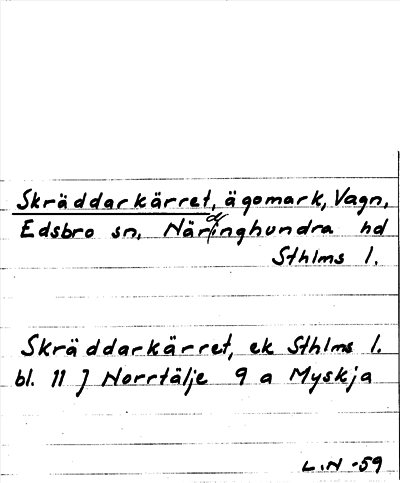 Skräddarkärret, ägomark, Vagn,
Edsbro sn, Närdinghundra hd
Sthlms l.
Skräddarkärret, ek Sthlms l.
bl. 11 J Norrtälje 9 a Myskja
L.N -59